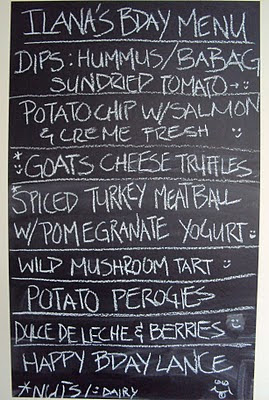 ILANA'S BDAY MENU
DIPS: HUMMUS/BABAG
SUNDRIED TOMATO →:)
POTATO CHIP W/SALMON
& CREME FRESH :)
*:) GOATS CHEESE TRUFFLES
*SPICED TURKEY MEATBALL
W/POMEGRANATE YOGURT :)
WILD MUSHROOM TART :)
POTATO PEROGIES
DULCE DE LECHE & BERRIES :)
HAPPY BDAY LANCE
*NUTS/:) DAIRY